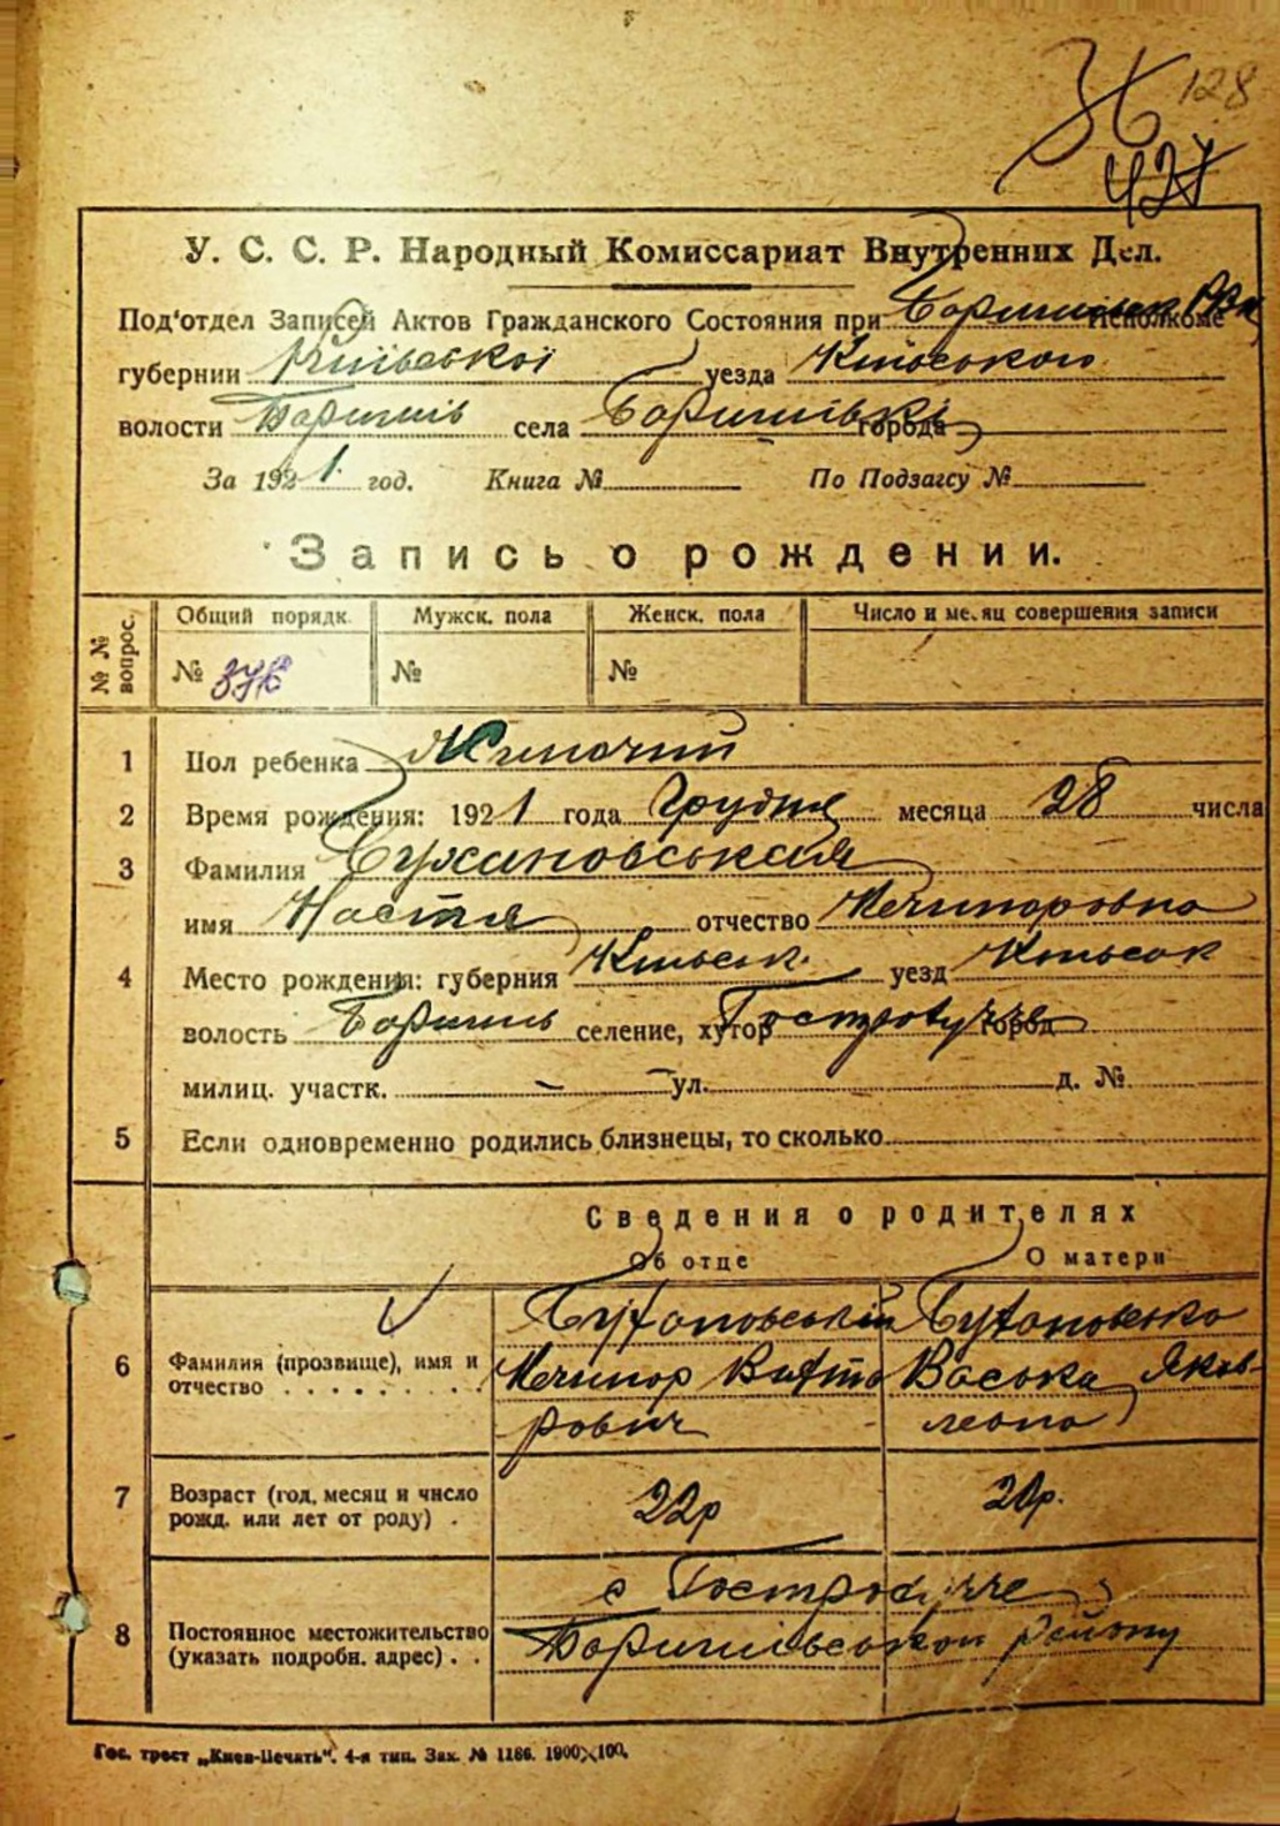 128
36
427
У. С. С. Р. Народный Комиссариат Внутренних Дел.
Под'отдел Записей Актов Гражданского Состояния при Исполкоме
губернии Київської уезда Київського
волости Баришів села Баришівкі города
За 1921 год. Книга № По Подзагсу №
Запись о рождении.
№ № вопрос. Общий порядк. Мужск. пола Женск. пола Число и месяц совершения записи
№ № №
1 Пол ребенка Жиночий
2 Время рождения: 1921 года Грудня месяца 28 числа
3 Фамилия Сухановськая
имя Настя отчество Мечипоровна
4 Место рождения: губерния Київськ. уезд Київськ
волость Баришів селение, хутор Гостролуччє город
милиц. участк. — ул. д. №
5 Если одновременно родились близнецы, то сколько
Сведения о родителях
Об отце О матери
6 Фамилия (прозвище), имя и отчество
Сухановський
Мечипор
рович
Сухановська
Васька Яков
левна
7 Возраст (год, месяц и число рожд. или лет от роду) . 22р 20р.
8 Постоянное местожительство (указать подробн. адрес) . .
с Гостролуччє
Баришівського Району
Гос. трест „Киев-Печать". 4-я тип. Зак. № 1186. 1900×100.